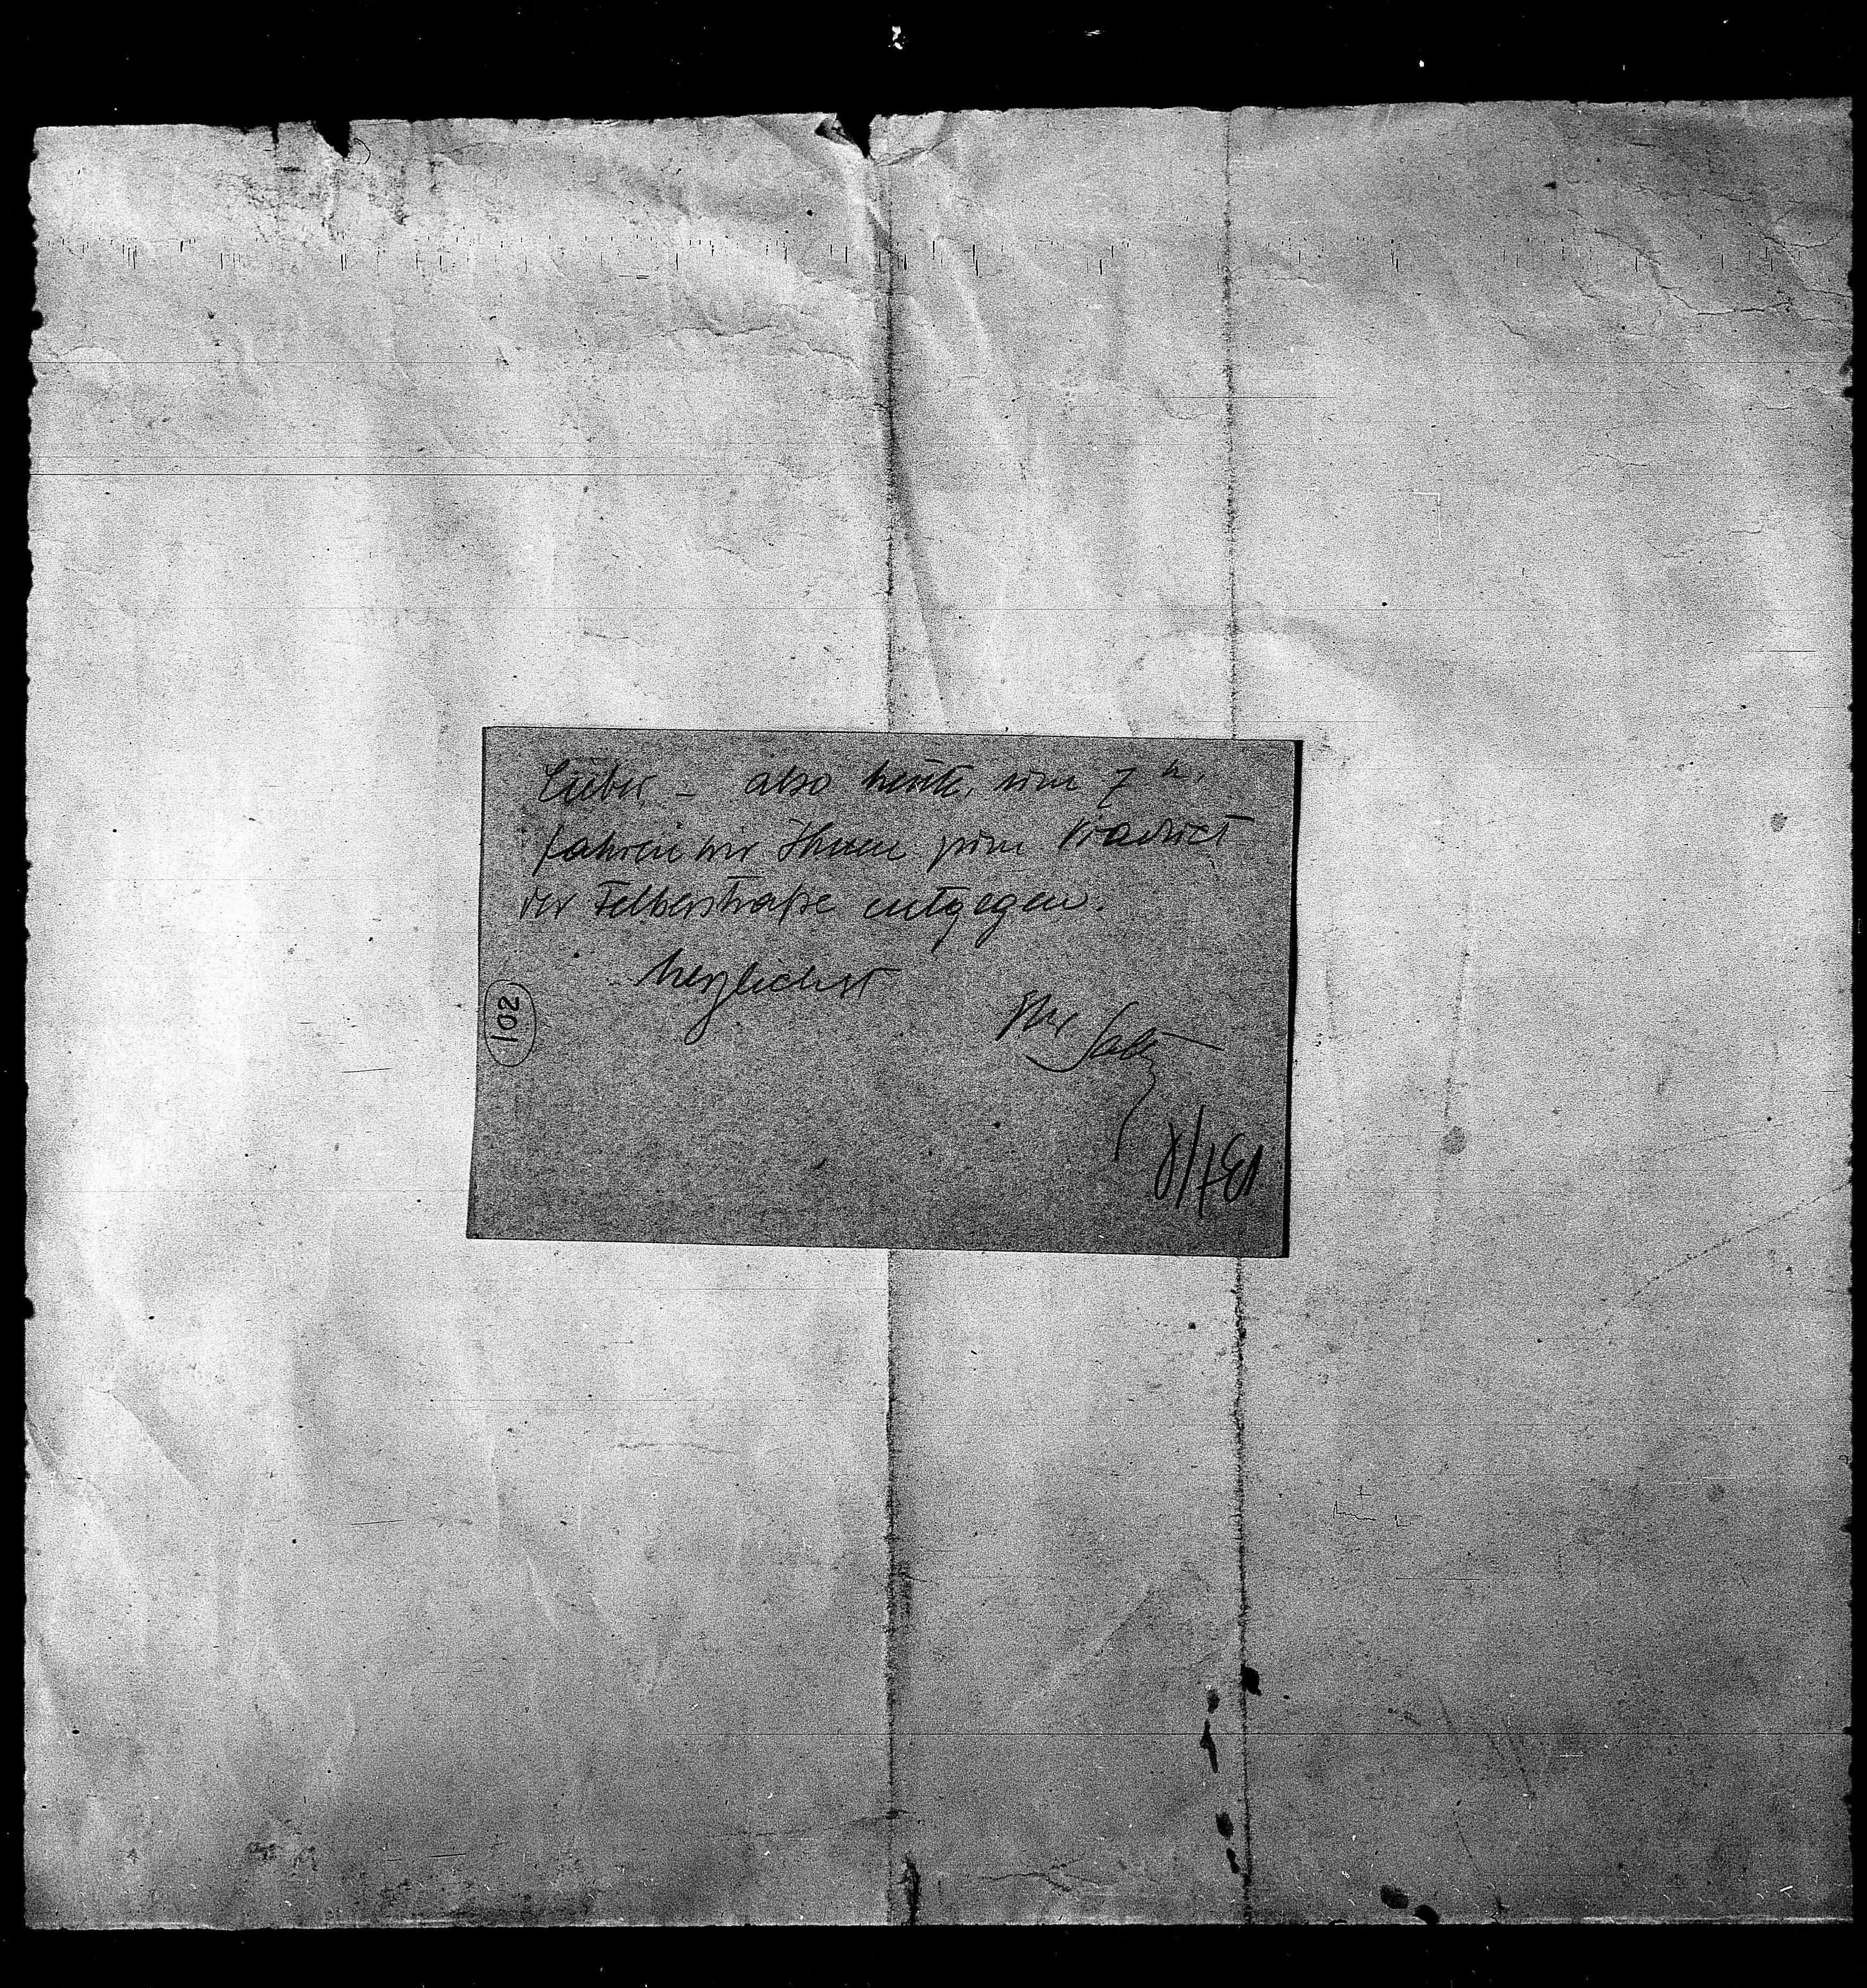 Lieber, – also heute, um 7 h.
fahren wir Ihnen zum Viaduct
der Felberstraße entgegen.
herzlichst
Ihr Salten
102